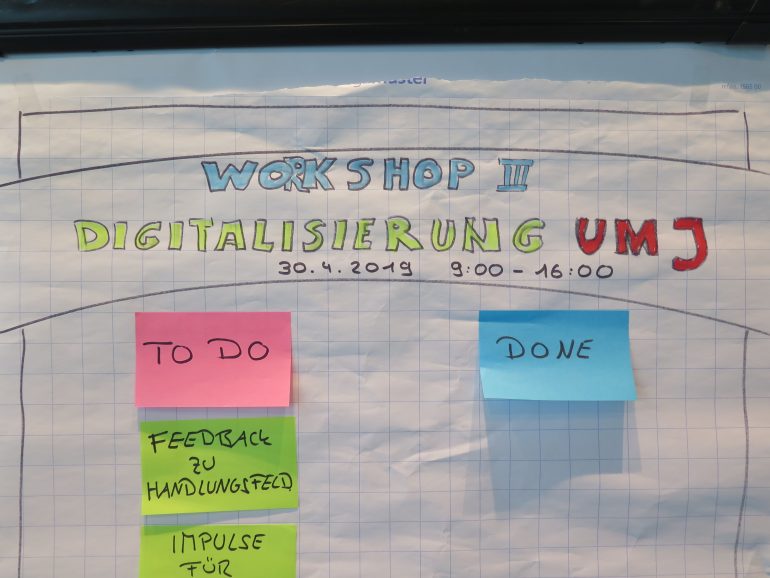 WORKSHOP III
DIGITALISIERUNG UMJ
30.4.2019 9:00 - 16:00
TO DO
DONE
FEEDBACK
ZU
HANDLUNGSFELD
IMPULSE
FÜR